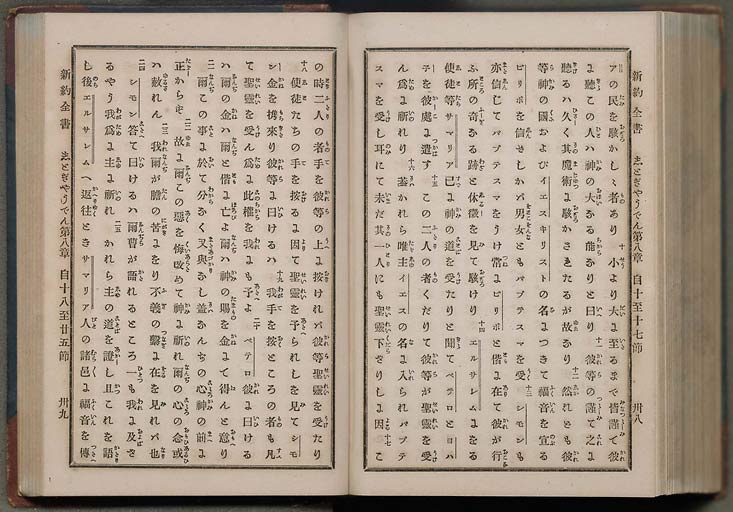 新約全書 志とぎやうでん第八章 自十至十七節 卅八
アの民を駭かしゝ者あり 十 小より大に至るまで皆謹て彼
に聽この人ハ神の大なる能なりと曰り 十一 彼等の謹て之に
聽るハ久く其魔術に駭かされたるが故なり 十二 然れども彼
等神の國およびイエスキリストの名につきて福音を宣る
ピリポを信せしかバ男女ともバプテスマを受 十三 シモンも
亦信じてバプテスマをうけ常にピリポと偕に在て彼が行
ふ所の奇なる跡と休徵を見て駭けり 十四 エルサレムにをる
使徒等サマリア已に神の道を受たりと聞てペテロとヨハ
子を彼處に遣す 十五 この二人の者くだりて彼等が聖靈を受
ん爲に祈れり 十六 蓋かれら唯主イエスの名に入られバプテ
スマを受し耳にて未だ其一人にも聖靈下ざりしに因 十七 こ
の時二人の者手を彼等の上に按けれバ彼等聖靈を受たり
十八 使徒たちの手を按るに因て聖靈を予られしを見てシモ
ン金を携來り彼等に曰けるハ 十九 我手を按ところの者も凡
て聖靈を受ん爲に此權を我にも予よ 二十 ペテロ彼に曰ける
ハ爾の金ハ爾と偕に亡よ爾ハ神の賜を金にて得んと意り
二一 爾この事に於て分なく又與なし蓋なんぢの心神の前に
正からず 二二 故に爾この惡を悔改めて神に祈れ爾の心の念或
ハ赦れん 二三 我爾が膽の苦にをり不義の繫に在を見れバ也
二四 シモン答て曰けるハ爾曹が語れるところ一も我に及ざ
るやう我爲に主に祈れ 二五 かれら主の道を證し且これを語
し後エルサレムへ返往ときサマリア人の諸邑に福音を傳
新約全書 志とぎやうでん第八章 自十八至廿五節 卅九